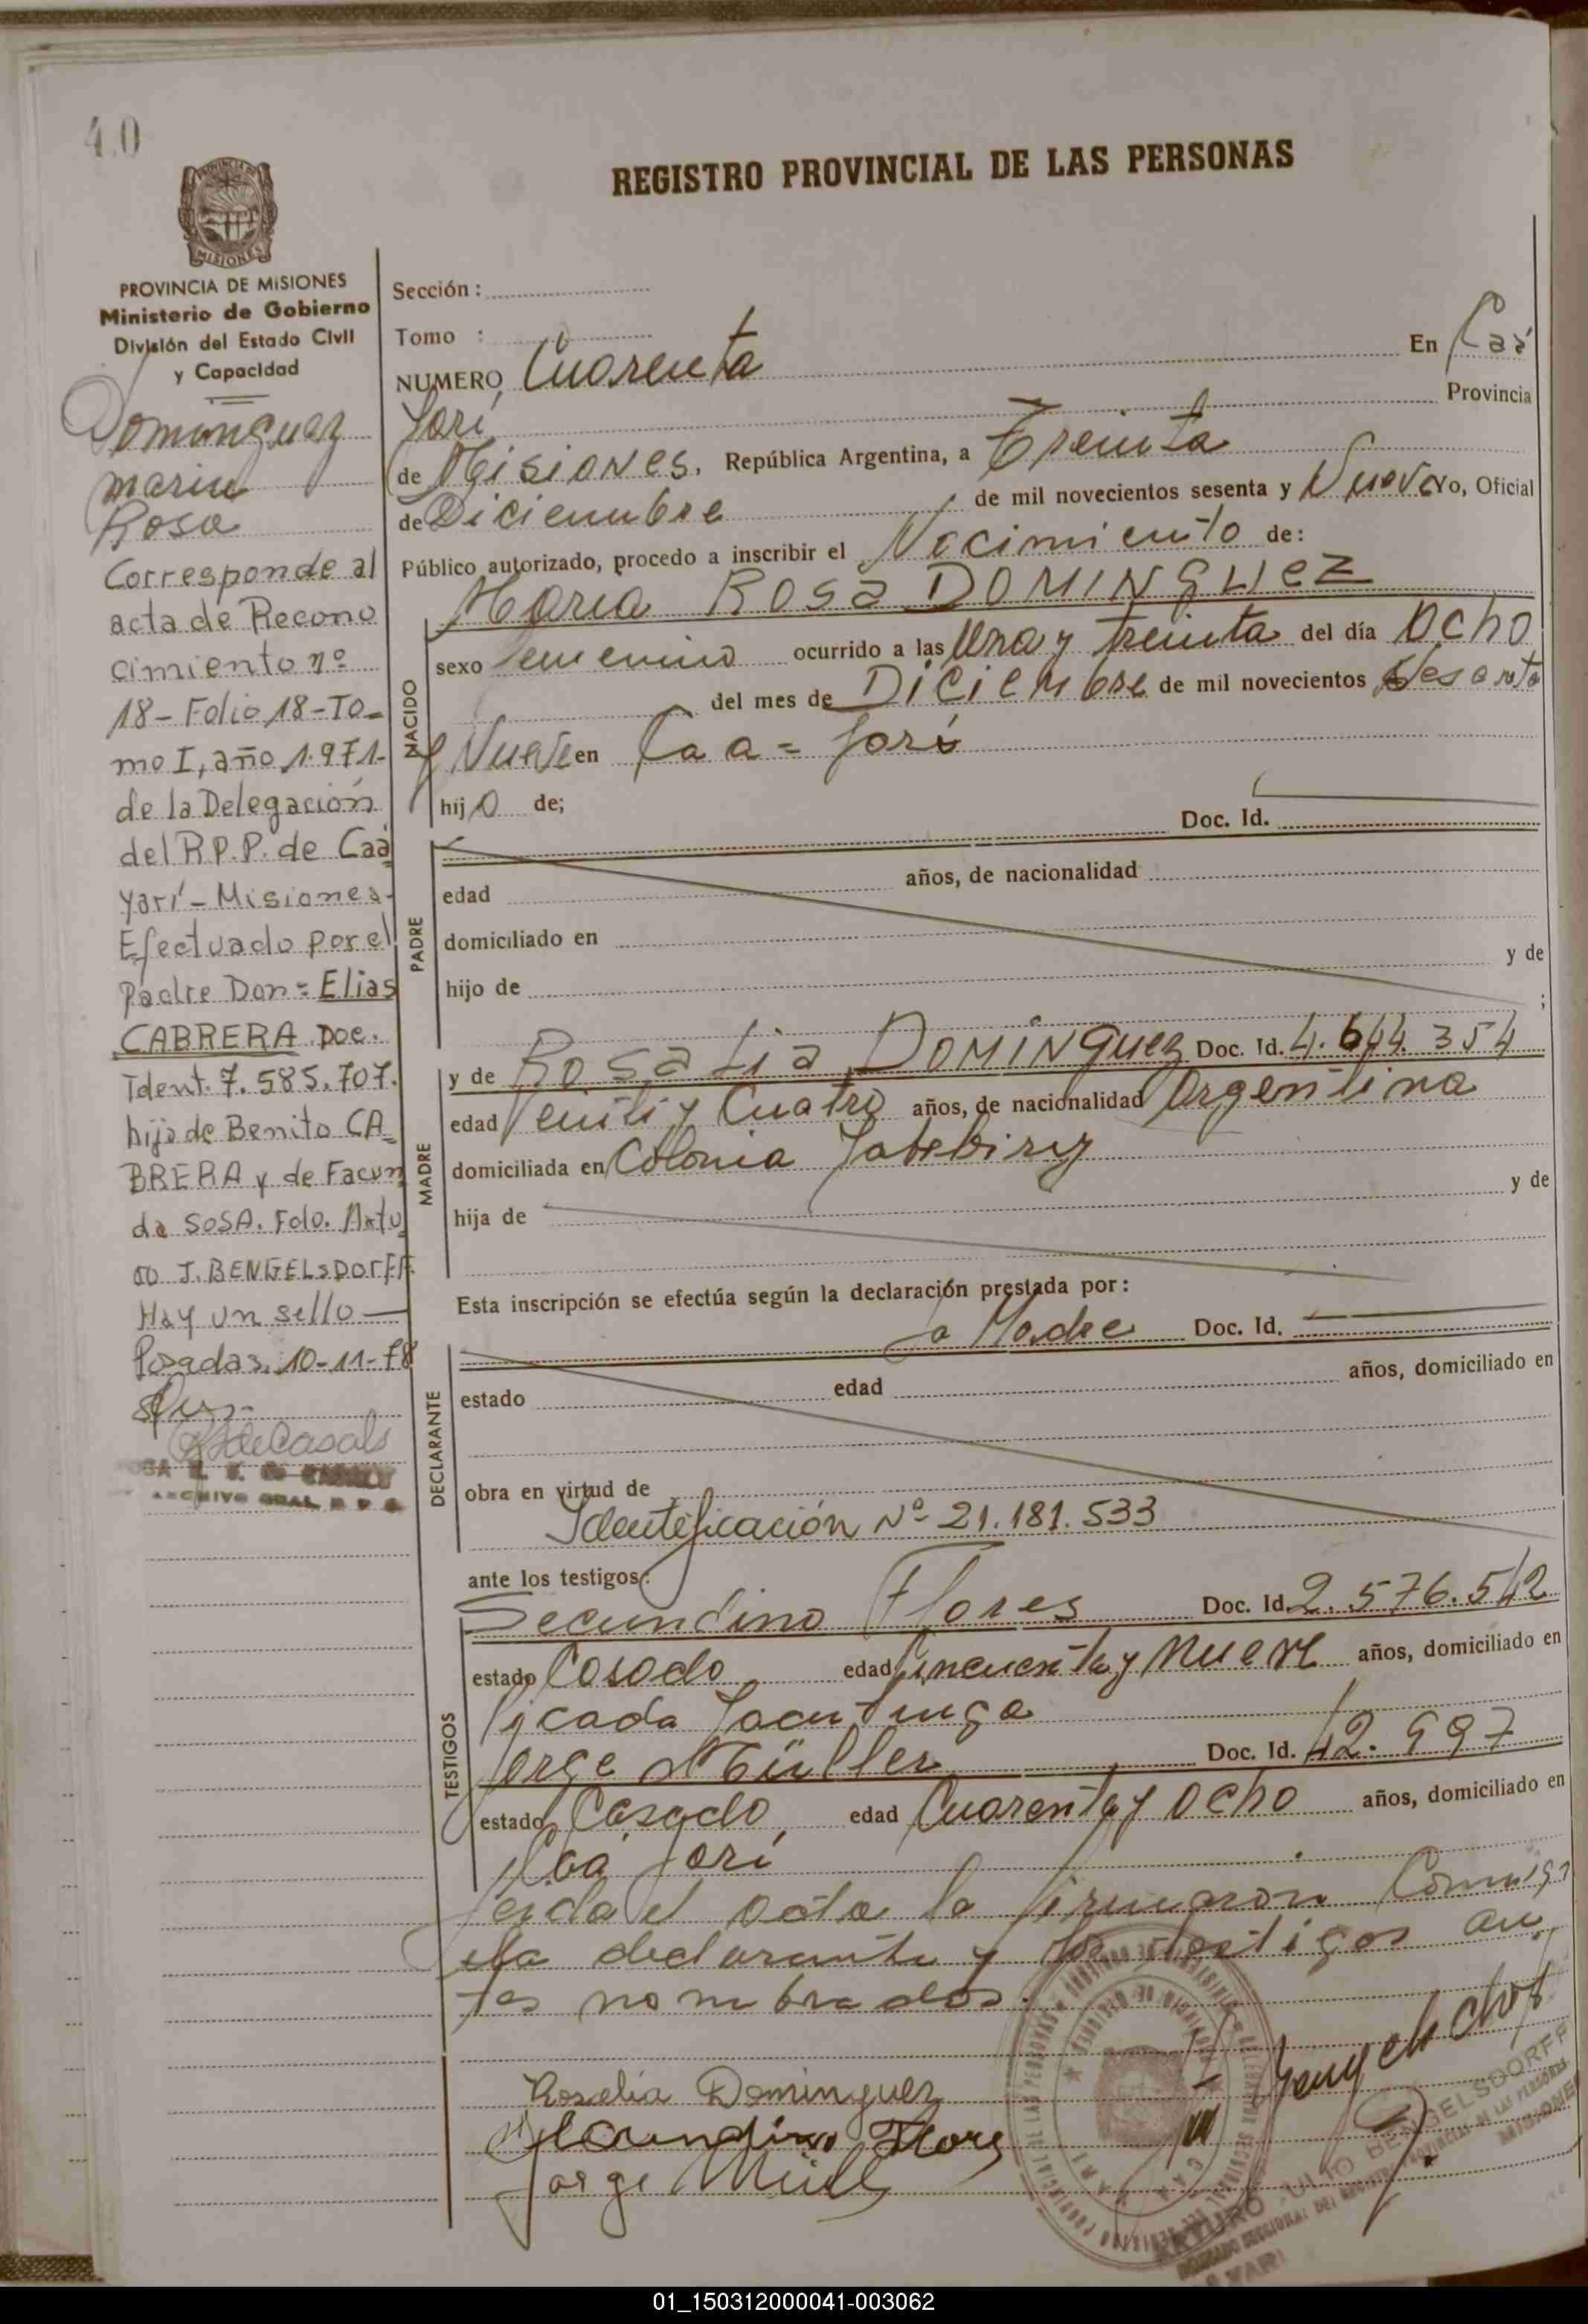 40
REGISTRO PROVINCIAL DE LAS PERSONAS
PROVINCIA DE MISIONES
MISIONES
PROVINCIA DE MISIONES
Ministerio de Gobierno
División del Estado Civil
y Capacidad
Dominguez
Maria
Rosa
Corresponde al
acta de Recono
cimiento nº
18- Folio 18-To-
mo I, año 1.971-
de la Delegación
del R.P.P. de Caá
Yarí- Misiones-
Efectuado por el
Padre Don= Elias
CABRERA Doc.
Ident. 7.585.707.
hijo de Benito CA-
BRERA y de Facun
da SOSA. Fdo. Artu
ro J. BENGELSDORFF
Hay un sello —
Posadas, 10-11-78
ARCHIVO GRAL. R P P
Sección :
Tomo :
NUMERO Cuarenta En Caá
Yarí Provincia
de Misiones, República Argentina, a Treinta
de Diciembre de mil novecientos sesenta y Nueve Yo, Oficial
Público autorizado, procedo a inscribir el Nacimiento de:
Maria Rosa DOMINGUEZ
NACIDO
sexo femenino ocurrido a las Una y treinta del día Ocho
del mes de Diciembre de mil novecientos Sesenta
y Nueve en Caa= Yarí
hija de;
PADRE
Doc. Id.
edad años, de nacionalidad
domiciliado en
hijo de y de
;
MADRE
y de Rosalia Dominguez Doc. Id. 4.644.354
edad Veinti y Cuatro años, de nacionalidad Argentina
domiciliada en Colonia Yabebiry
hija de y de
Esta inscripción se efectúa según la declaración prestada por :
DECLARANTE
la Madre Doc. Id.
estado edad años, domiciliado en
obra en virtud de
Identificación Nº 21.181.533
ante los testigos:
TESTIGOS
Secundino Flores Doc. Id. 2.576.542
estado Casado edad Cincuenta y Nueve años, domiciliado en
Picada Yacutinga
Jorge Müller Doc. Id. 42.997
estado Casado edad Cuarenta y Ocho años, domiciliado en
Caá Yarí
Leida el acta la firmaron Conmigo
la declarante y los testigos an
tes nombrados.
Rosalia Dominguez
Secundino Flores
Jorge Müller
ARTURO JULIO BENGELSDORFF
DELEGADO SECCIONAL DEL REGISTRO PROVINCIAL DE LAS PERSONAS
CAA YARI MISIONES
01_150312000041-003062